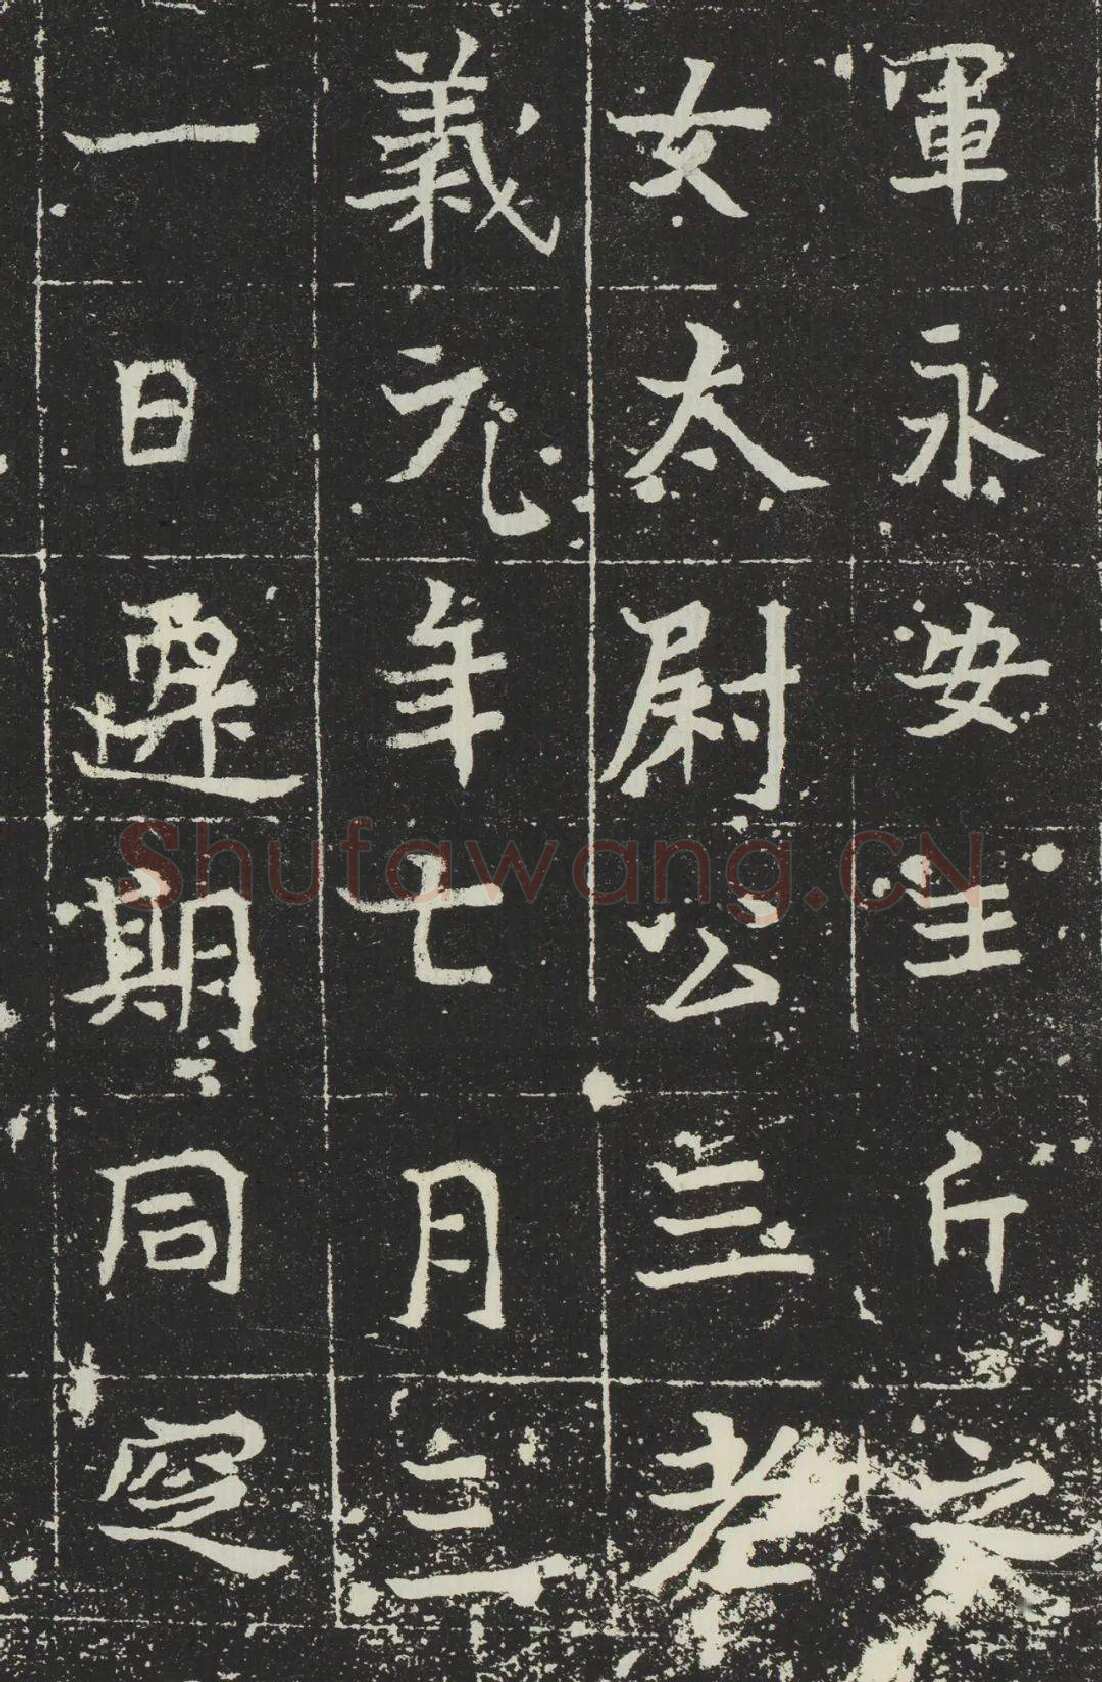 軍永安主斤之
女太尉公三老
義元年七月三
一日遷期同窆
Shufawang.CN